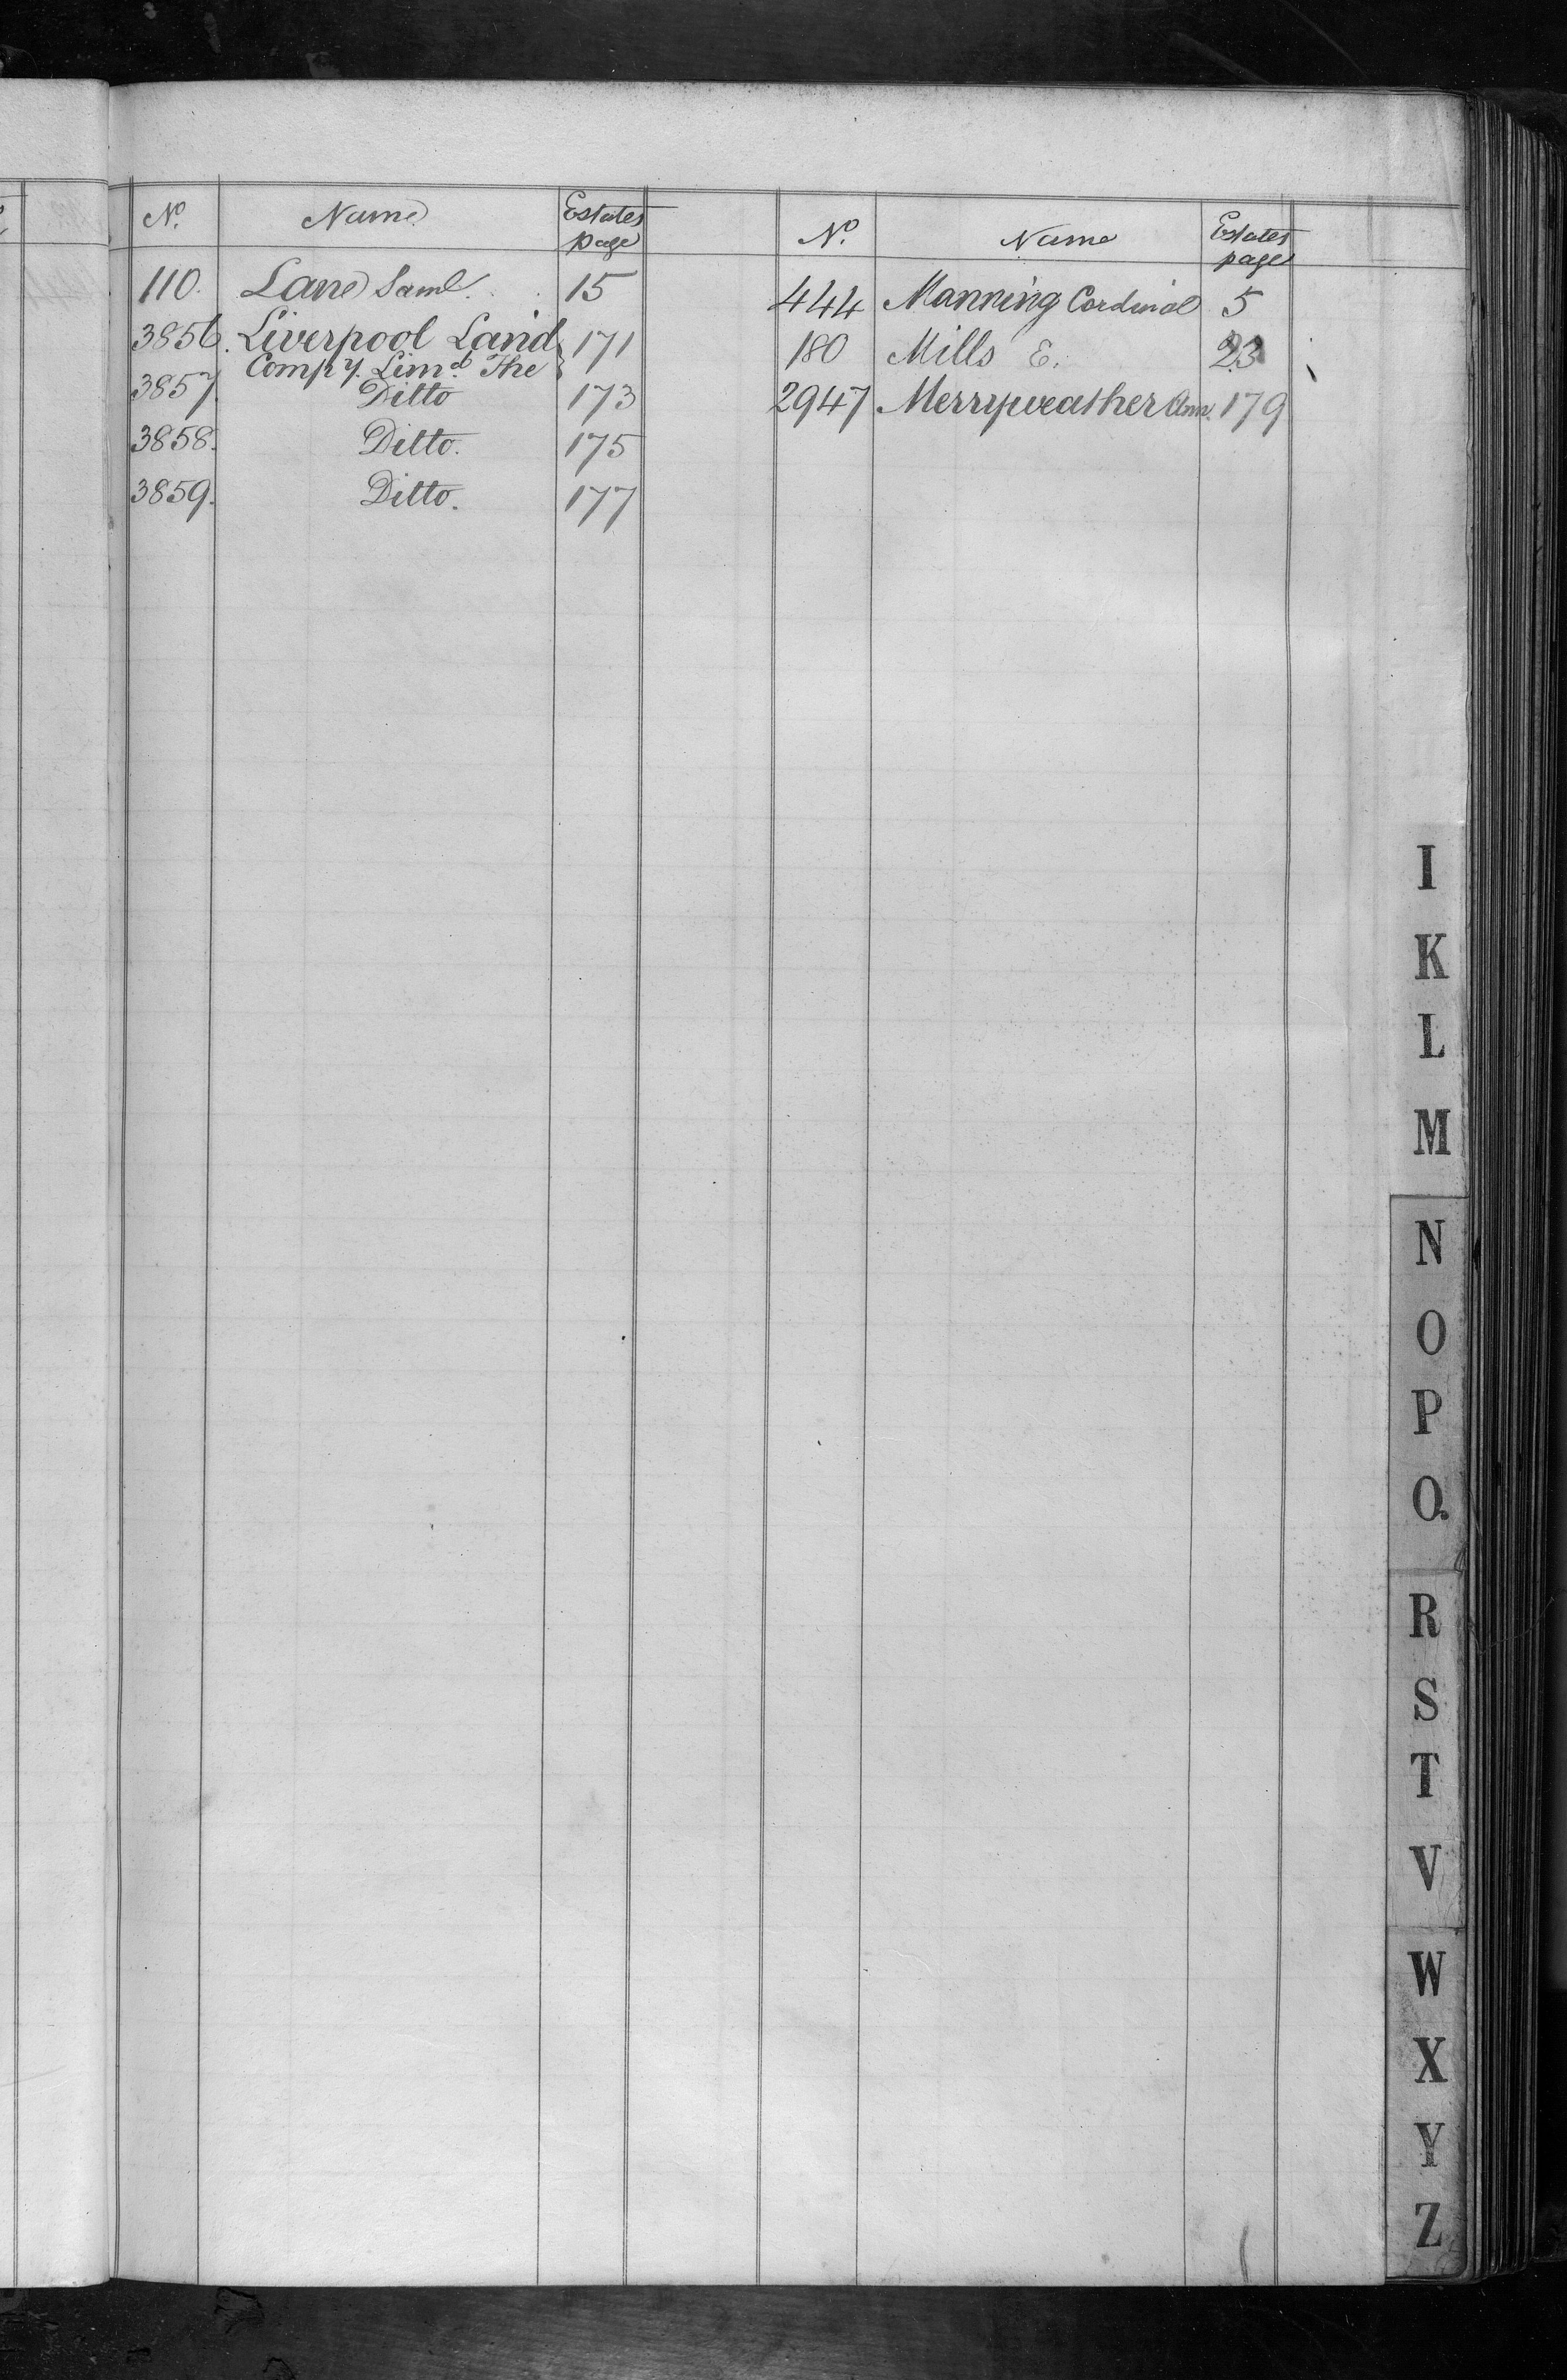 No. Name Estates page
110. Lane Saml. 15
3856. Liverpool Land 171
Compy. Limd. The
3857. Ditto 173
3858. Ditto. 175
3859. Ditto. 177
No. Name Estates page
444 Manning Cardinal 5
180 Mills E. 23
2947 Merryweather Ann. 179
I
K
L
M
N
O
P
Q
R
S
T
V
W
X
Y
Z